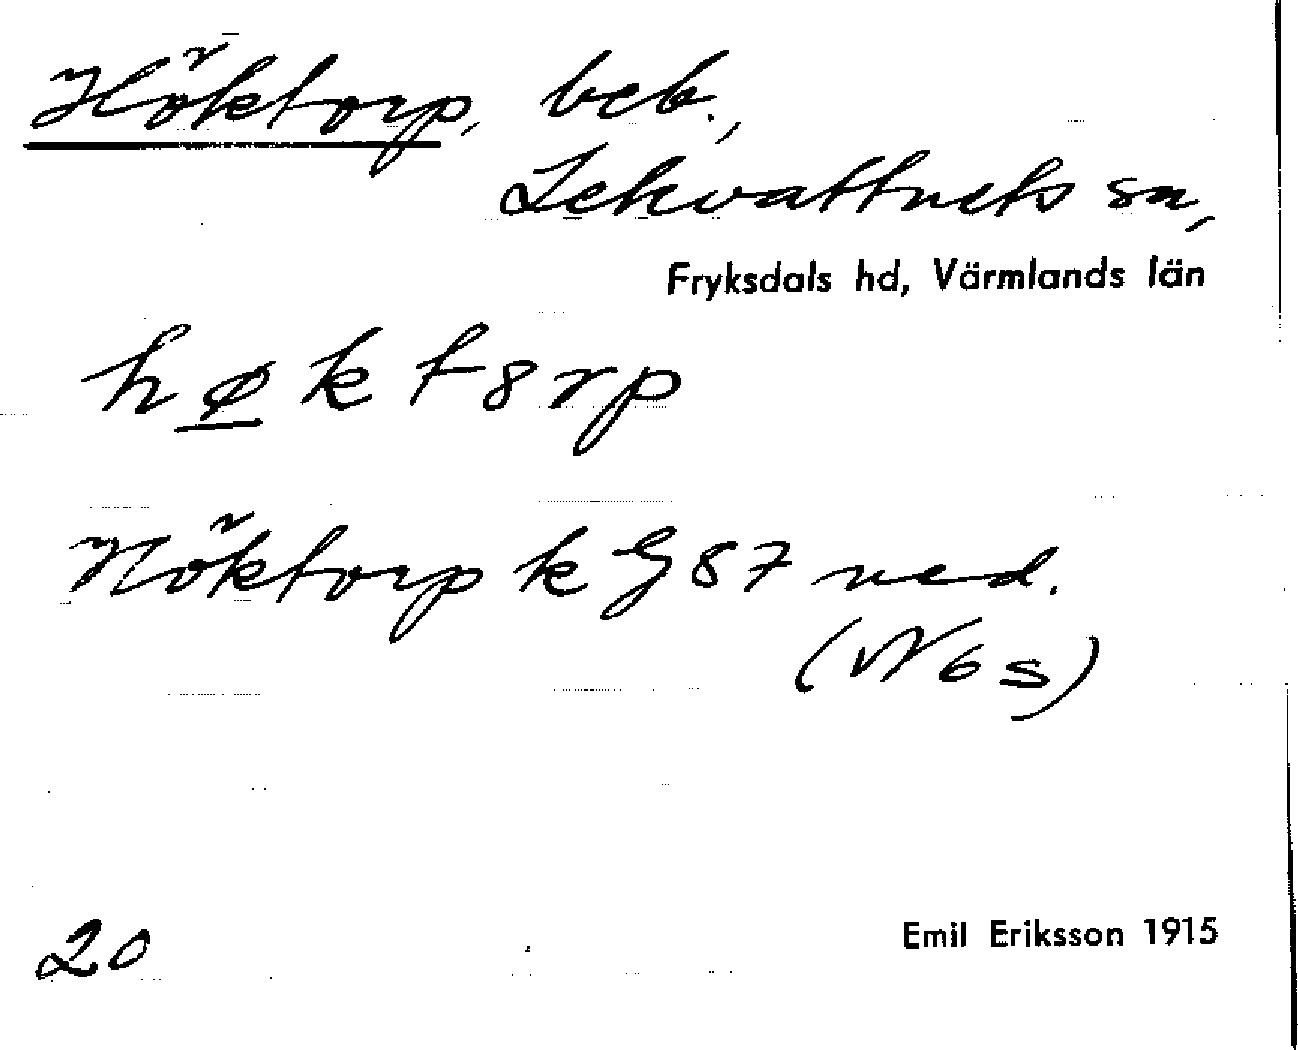 Höktorp, beb.,
Lekvattnets sn,
Fryksdals hd, Värmlands län
hø̲kt8rp
Höktorp k G 87 ned.
(VV 6 s)
20
Emil Eriksson 1915